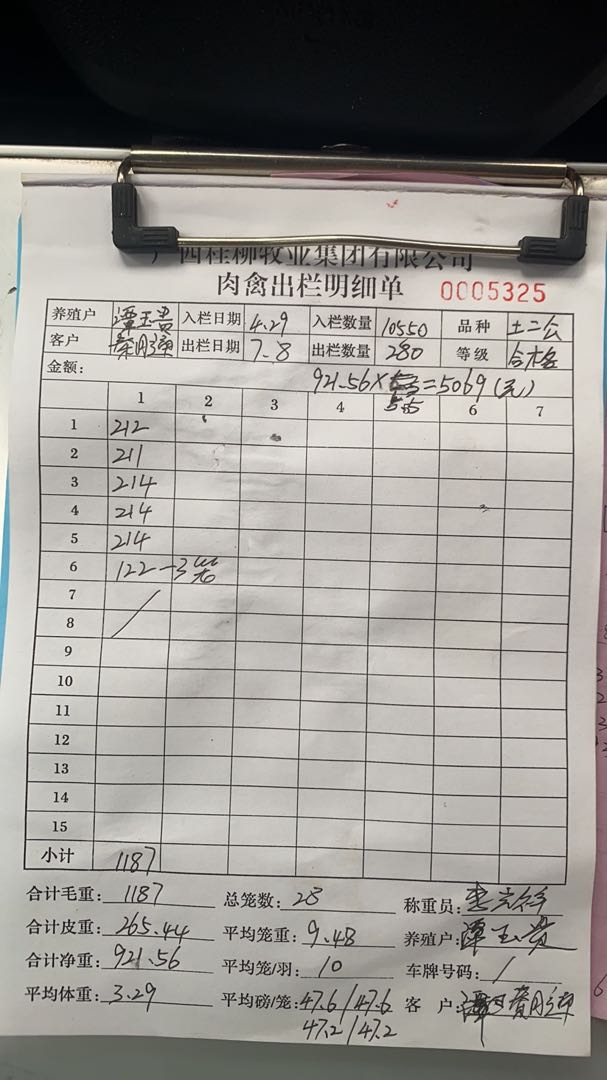 广西桂柳牧业集团有限公司
肉禽出栏明细单 0005325
养殖户 谭玉贵 入栏日期 4.29 入栏数量 10550 品种 土二公
客户 出栏日期 7.8 出栏数量 280 等级 合格
金额: 921.56× 5.5=5069(元)
1 2 3 4 6 7
1 212
2 211
3 214
4 214
5 214
6 122-3笼
7
8
9
10
11
12
13
14
15
小计 1187
合计毛重: 1187 总笼数: 28 称重员:
合计皮重: 265.44 平均笼重: 9.48 养殖户: 谭玉贵
合计净重: 921.56 平均笼/羽: 10 车牌号码: /
平均体重: 3.29 平均磅/笼: 47.6/47.6 客户:
47.2/47.2